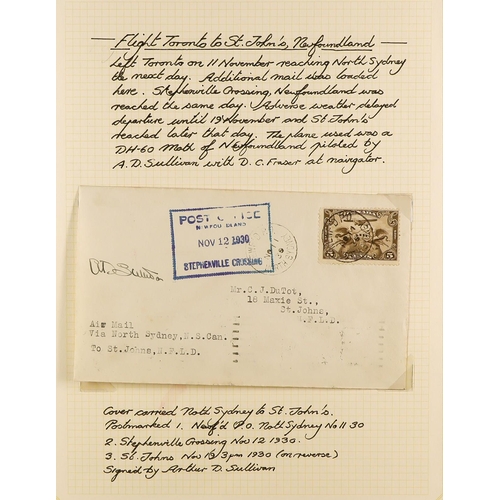 Flight Toronto to St. John's, Newfoundland
Left Toronto on 11 November reaching North Sydney
the next day. Additional mail was loaded
here. Stephenville Crossing, Newfoundland was
reached the same day. Adverse weather delayed
departure until 19 November and St. John's
reached later that day. The plane used was a
DH-60 Moth of Newfoundland piloted by
A. D. Sullivan with D. C. Fraser at navigator.
POST OFFICE
NEWFOUNDLAND
NOV 12 1930
STEPHENVILLE CROSSING
5 5
Mr. C. J. DuTot,
18 Maxie St.,
St. Johns,
N.F.L.D.
Air Mail
Via North Sydney, N.S. Can.
To St. Johns, N.F.L.D.
Cover carried Noth Sydney to St. John's.
Postmarked 1. Newf'd P.O. Noth Sydney No 11 30
2. Stephenville Crossing Nov 12 1930.
3. St. Johns Nov 3pm 1930 (on reverse)
Signed by Arthur D. Sullivan